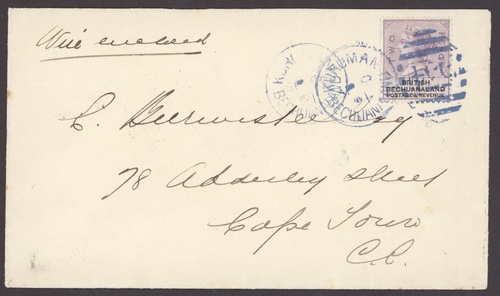 Wire enclosed
KURUMAN
TWO
BRITISH
BECHUANALAND
POSTAGE & REVENUE
C. Esq
78 Adderley Street
Cape Town
C.C.